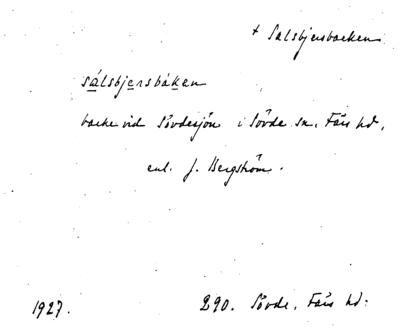 + Salsbjersbacken
sálsbjersbáken
backe vid Sövdesjön i Sövde sn. Färs hd,
enl. J. Bergström.
1927. 290. Sövde, Färs hd.